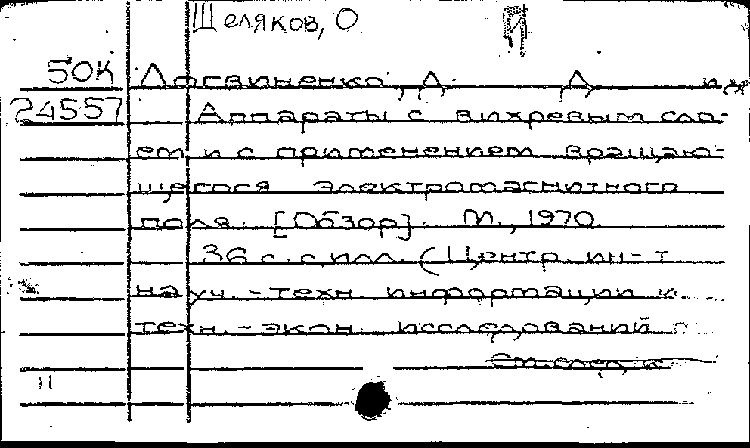 Шеляков, О
50К Логвиненко, Д. Д. и др
24557 Аппараты с вихревым сло-
ем и с применением вращаю-
щегося электромагнитного
поля. [Обзор]. М., 1970.
36 с. с илл. (Центр. ин-т
науч.-техн. информации и
техн.-экон. исследований
См. след. к
11